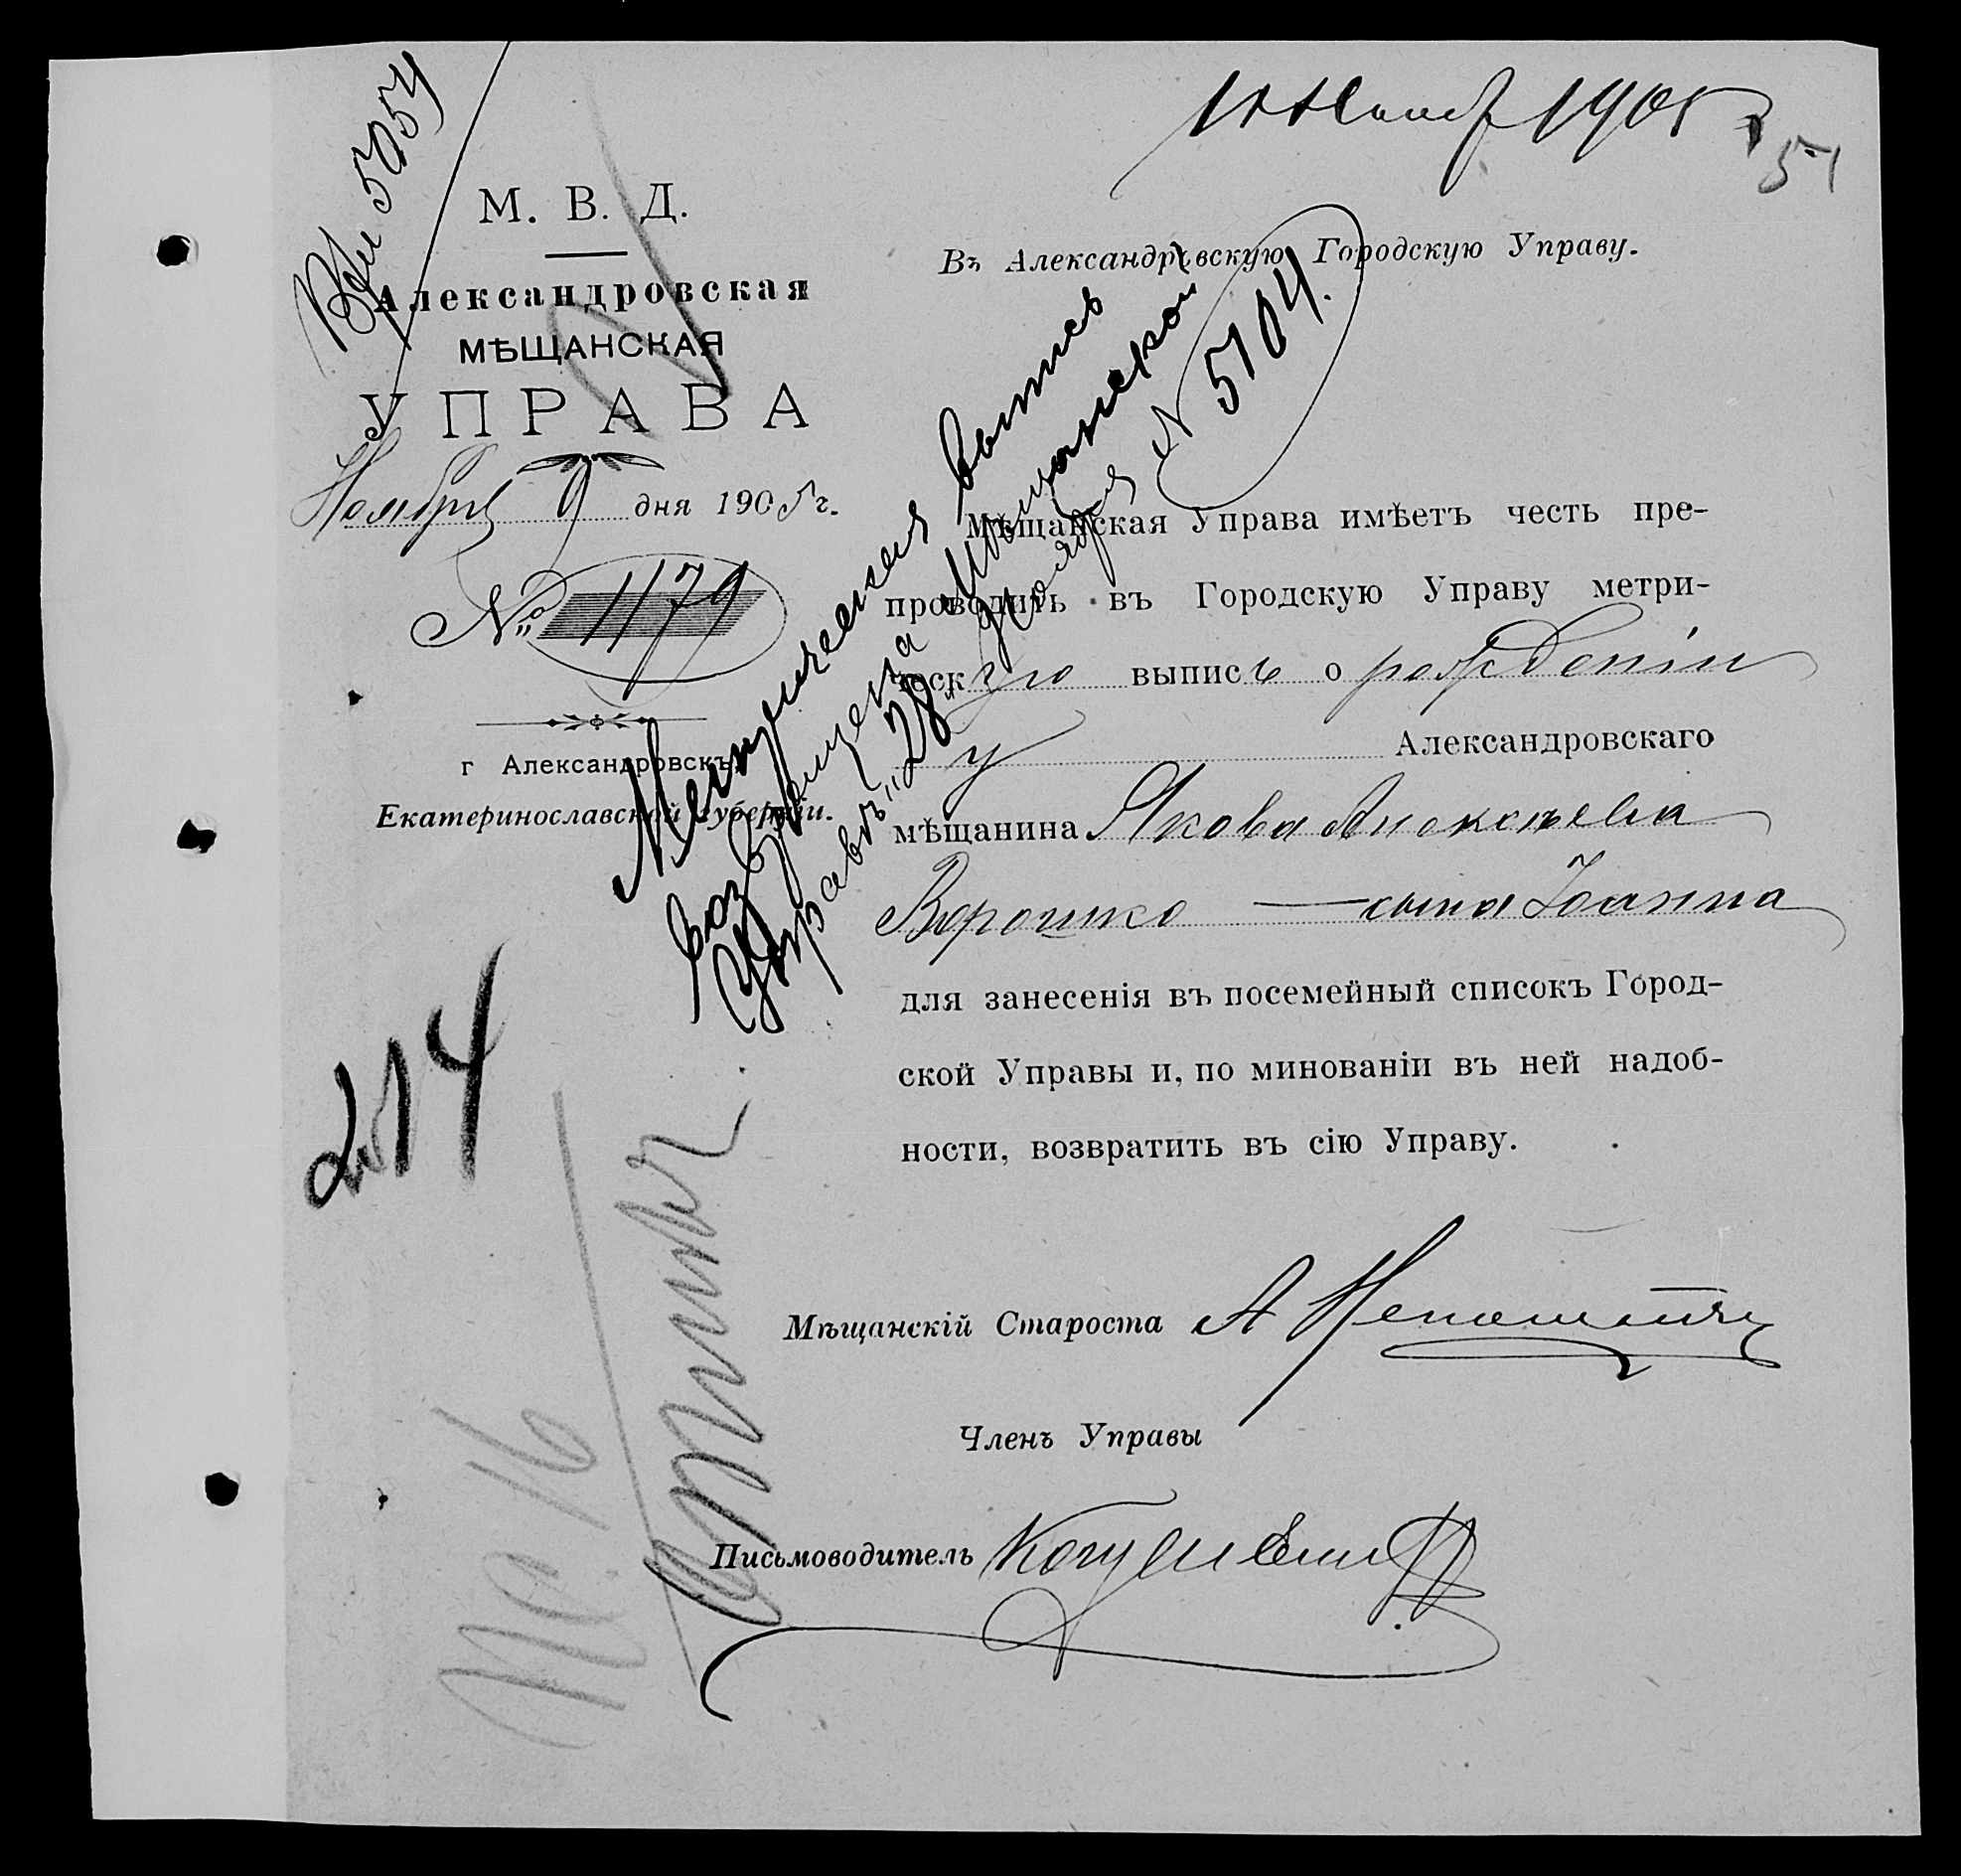 Вх № 5054
10 Ноябр 1905 г
51
М. В. Д.
Александровская
МѢЩАНСКАЯ
УПРАВА
Ноября 9 дня 1905 г.
№ 1179
г Александровскъ,
Екатеринославской губерніи.
Въ Александровскую Городскую Управу.
Метрическая выпись
возвращена Мѣщанской
Управѣ „28“ Ноября № 5104.
Мѣщанская Управа имѣетъ честь пре-
проводить въ Городскую Управу метри-
ческую выпись о рожденіи
у Александровскаго
мѣщанина Якова Алексѣева
Ворошко — сына Іоанна
для занесенія въ посемейный списокъ Город-
ской Управы и, по минованіи въ ней надоб-
ности, возвратить въ сію Управу.
214
Мѣщанскій Староста А
Членъ Управы
Письмоводитель